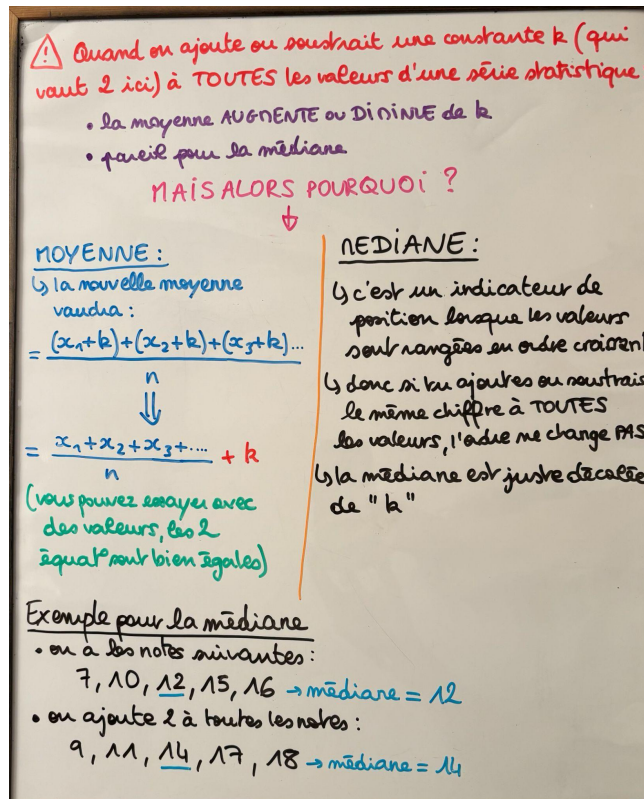 ⚠ Quand on ajoute ou soustrait une constante k (qui
vaut 2 ici) à TOUTES les valeurs d'une série statistique
• la moyenne AUGMENTE ou DIMINUE de k
• pareil pour la médiane
MAIS ALORS POURQUOI ?
↓
MOYENNE :
↳ la nouvelle moyenne
vaudra :
= (x₁+k)+(x₂+k)+(x₃+k)...
n
⇓
= x₁+x₂+x₃+.... + k
n
(vous pouvez essayer avec
des valeurs, les 2
équat° sont bien égales)
MEDIANE :
↳ c'est un indicateur de
position lorsque les valeurs
sont rangées en ordre croissant
↳ donc si tu ajoutes ou soustrais
le même chiffre à TOUTES
les valeurs, l'ordre ne change PAS
↳ la médiane est juste décalée
de "k"
Exemple pour la médiane
• on a les notes suivantes :
7, 10, 12, 15, 16 → médiane = 12
• on ajoute 2 à toutes les notes :
9, 11, 14, 17, 18 → médiane = 14